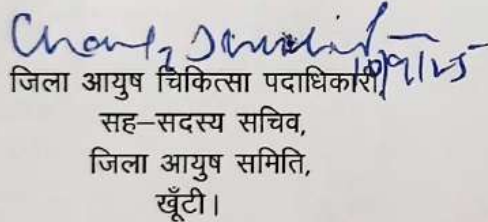 जिला आयुष चिकित्सा पदाधिकारी
सह–सदस्य सचिव,
जिला आयुष समिति,
खूँटी।